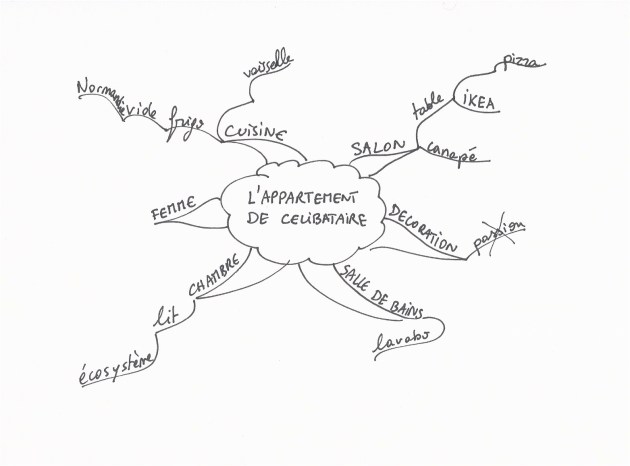 L'APPARTEMENT
DE CELIBATAIRE
CUISINE
vaisselle
frigo
vide
Normandie
SALON
table
pizza
IKEA
canapé
DECORATION
passion
SALLE DE BAINS
lavabo
CHAMBRE
lit
écosystème
FEMME